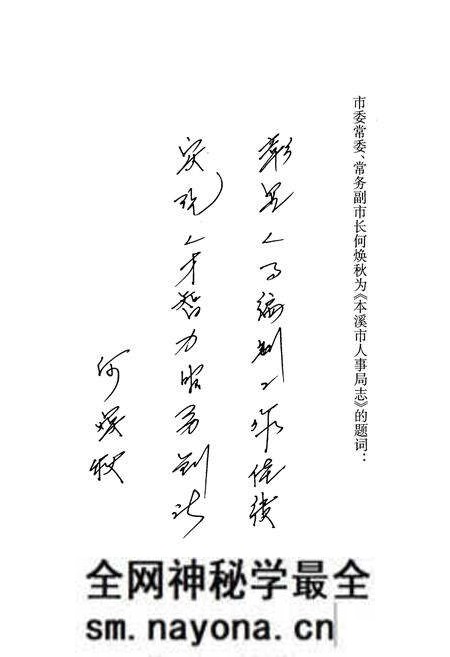 市委常委、常务副市长何焕秋为《本溪市人事局志》的题词：
彰显人事编制工作佳绩
实现人才智力
何焕秋
全网神秘学最全
sm.nayona.cn